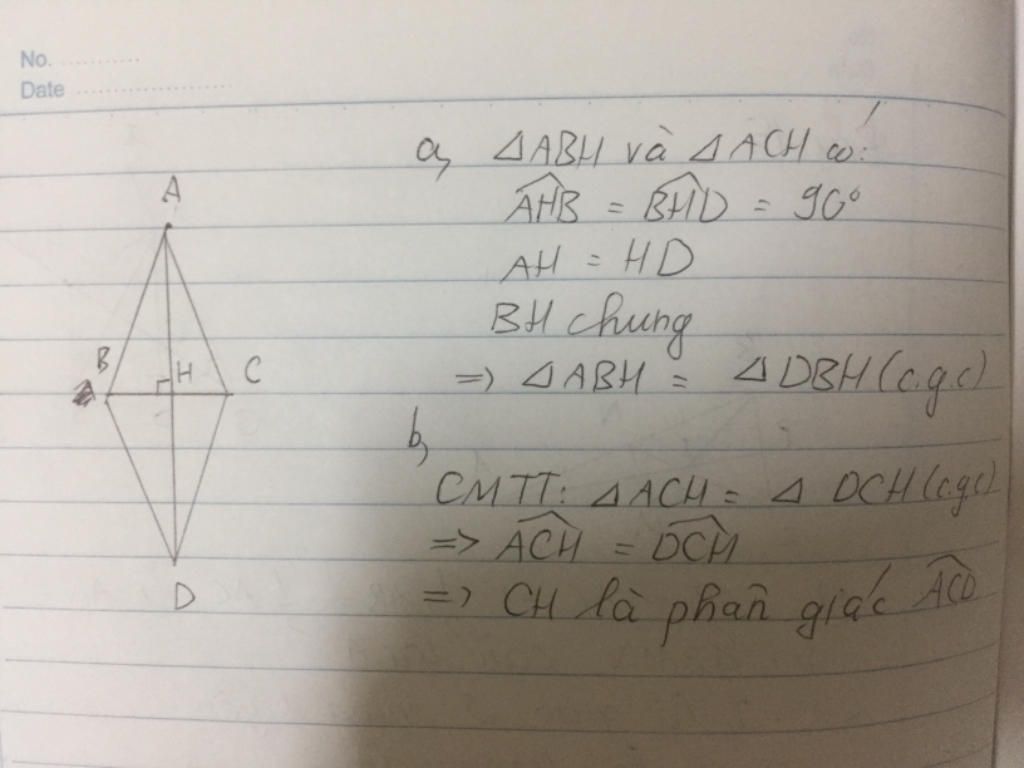 No. ............
Date ........................
a, ΔABH và ΔACH có:
A
∠AHB = ∠BHD = 90°
AH = HD
BH chung
B
H
C
=> ΔABH = ΔDBH (c.g.c)
b,
CMTT: ΔACH = Δ DCH (c.g.c)
=> ∠ACH = ∠DCH
D
=> CH là phân giác ∠ACD